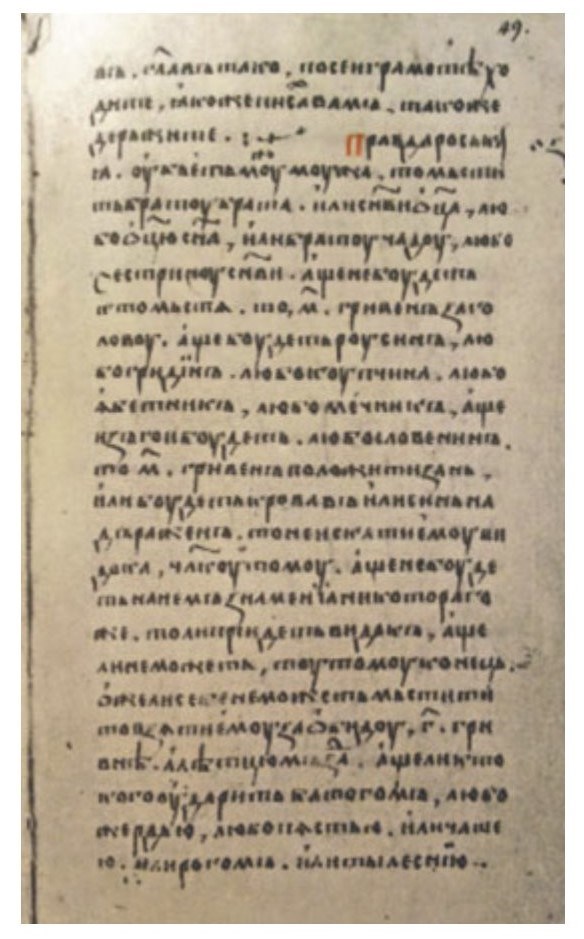 49.
въ. гл҃авъ тако. по сеи грамотѣ хо
дите, ꙗкоже писах вамъ. такоже
держите. Правда роськ
а. оубьеть моу моужа, то мьсти
ть братоу брата. или сн҃ви ѻц҃а, лю
бо ѻц҃ю сн҃а, или братоучадоу, любо
сестриноу сн҃ви. аще не боудеть
кто мьстя. то, м҃. гривенъ за го
ловоу. аще боудеть роусинъ, лю
бо гридинъ. любо коупчина. любо
ябетникъ, любо мечникъ, аще
изъгои боудеть. любо словенинъ.
то м҃. гривенъ положити за нь.
или боудеть кровавъ или синь на
дъраженъ. то не искати емоу ви
дока, чл҃коу томоу. аще не боуде
ть на немъ знамениа никотораго
же. то ли приидеть видокъ, аще
ли не можеть, тоу томоу конець.
оже ли себе не можеть мьстити
то взяти емоу за ѻбидоу, г҃. гри
внѣ. а лѣтцю мъзда. аще ли кто
кого оударить батогомъ, любо
жердью, любо пястью. или чаше
ю. или рогомъ. или тылеснию..